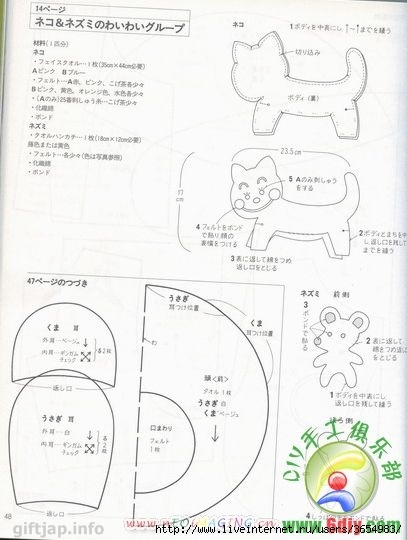 14ページ
ネコ&ネズミのわいわいグループ
材料(1匹分)
ネコ
・フェイスタオル…1枚(35cm×44cm必要)
Aピンク Bブルー
・フェルト…A赤、ピンク、こげ茶各少々
B ピンク、黄色、オレンジ色、水色各少々
・(Aのみ)25番刺しゅう糸…こげ茶少々
・化繊綿
・ボンド
ネズミ
・タオルハンカチ…1枚(18cm×12cm必要)
藤色または黄色
・フェルト…各少々(色は写真参照)
・化繊綿
・ボンド
ネコ
1 ボディを中表にし
までを縫う
切り込み
ボディ(裏)
23.5cm
17cm
5 Aのみ刺しゅう
をする
4 フェルトをボンド
で貼り顔の
表情をつける
2 ボディとまちを中
し返し口を残して
まで縫う
3 表に返して綿をつめ
返し口をとじる
47ページのつづき
くま 耳
外耳…ベージュ
内耳…ギンガム
チェック
各2枚
返し口
うさぎ 耳
外耳…白
内耳…ギンガム
チェック
各2枚
返し口
うさぎ
耳つけ位置
くま
耳つけ位置
わ
頭〈前〉
タオル 1枚
うさぎ 白
くま ベージュ
口まわり
フェルト
1枚
ネズミ 前側
3 ボンドで貼る
2 表に返して
綿をつめ返
をとじる
1 ボディを中表にし
返し口を残して縫う
後ろ側
48
giftjap.info
DIY手工俱乐部
www.6diy.com
http://www.liveinternet.ru/users/3654983/